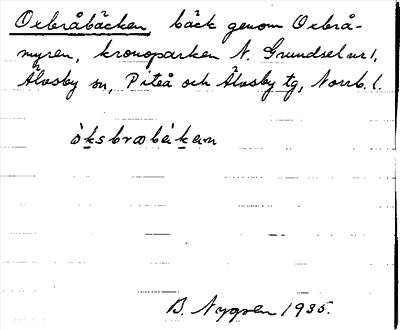 Oxbråbäcken, bäck genom Oxbrå-
myren, kronoparken N. Grundsel nr 1,
Älvsby sn, Piteå och Älvsby tg, Norrb. l.
òksbrɷbèkɐn
B. Nygren 1935.